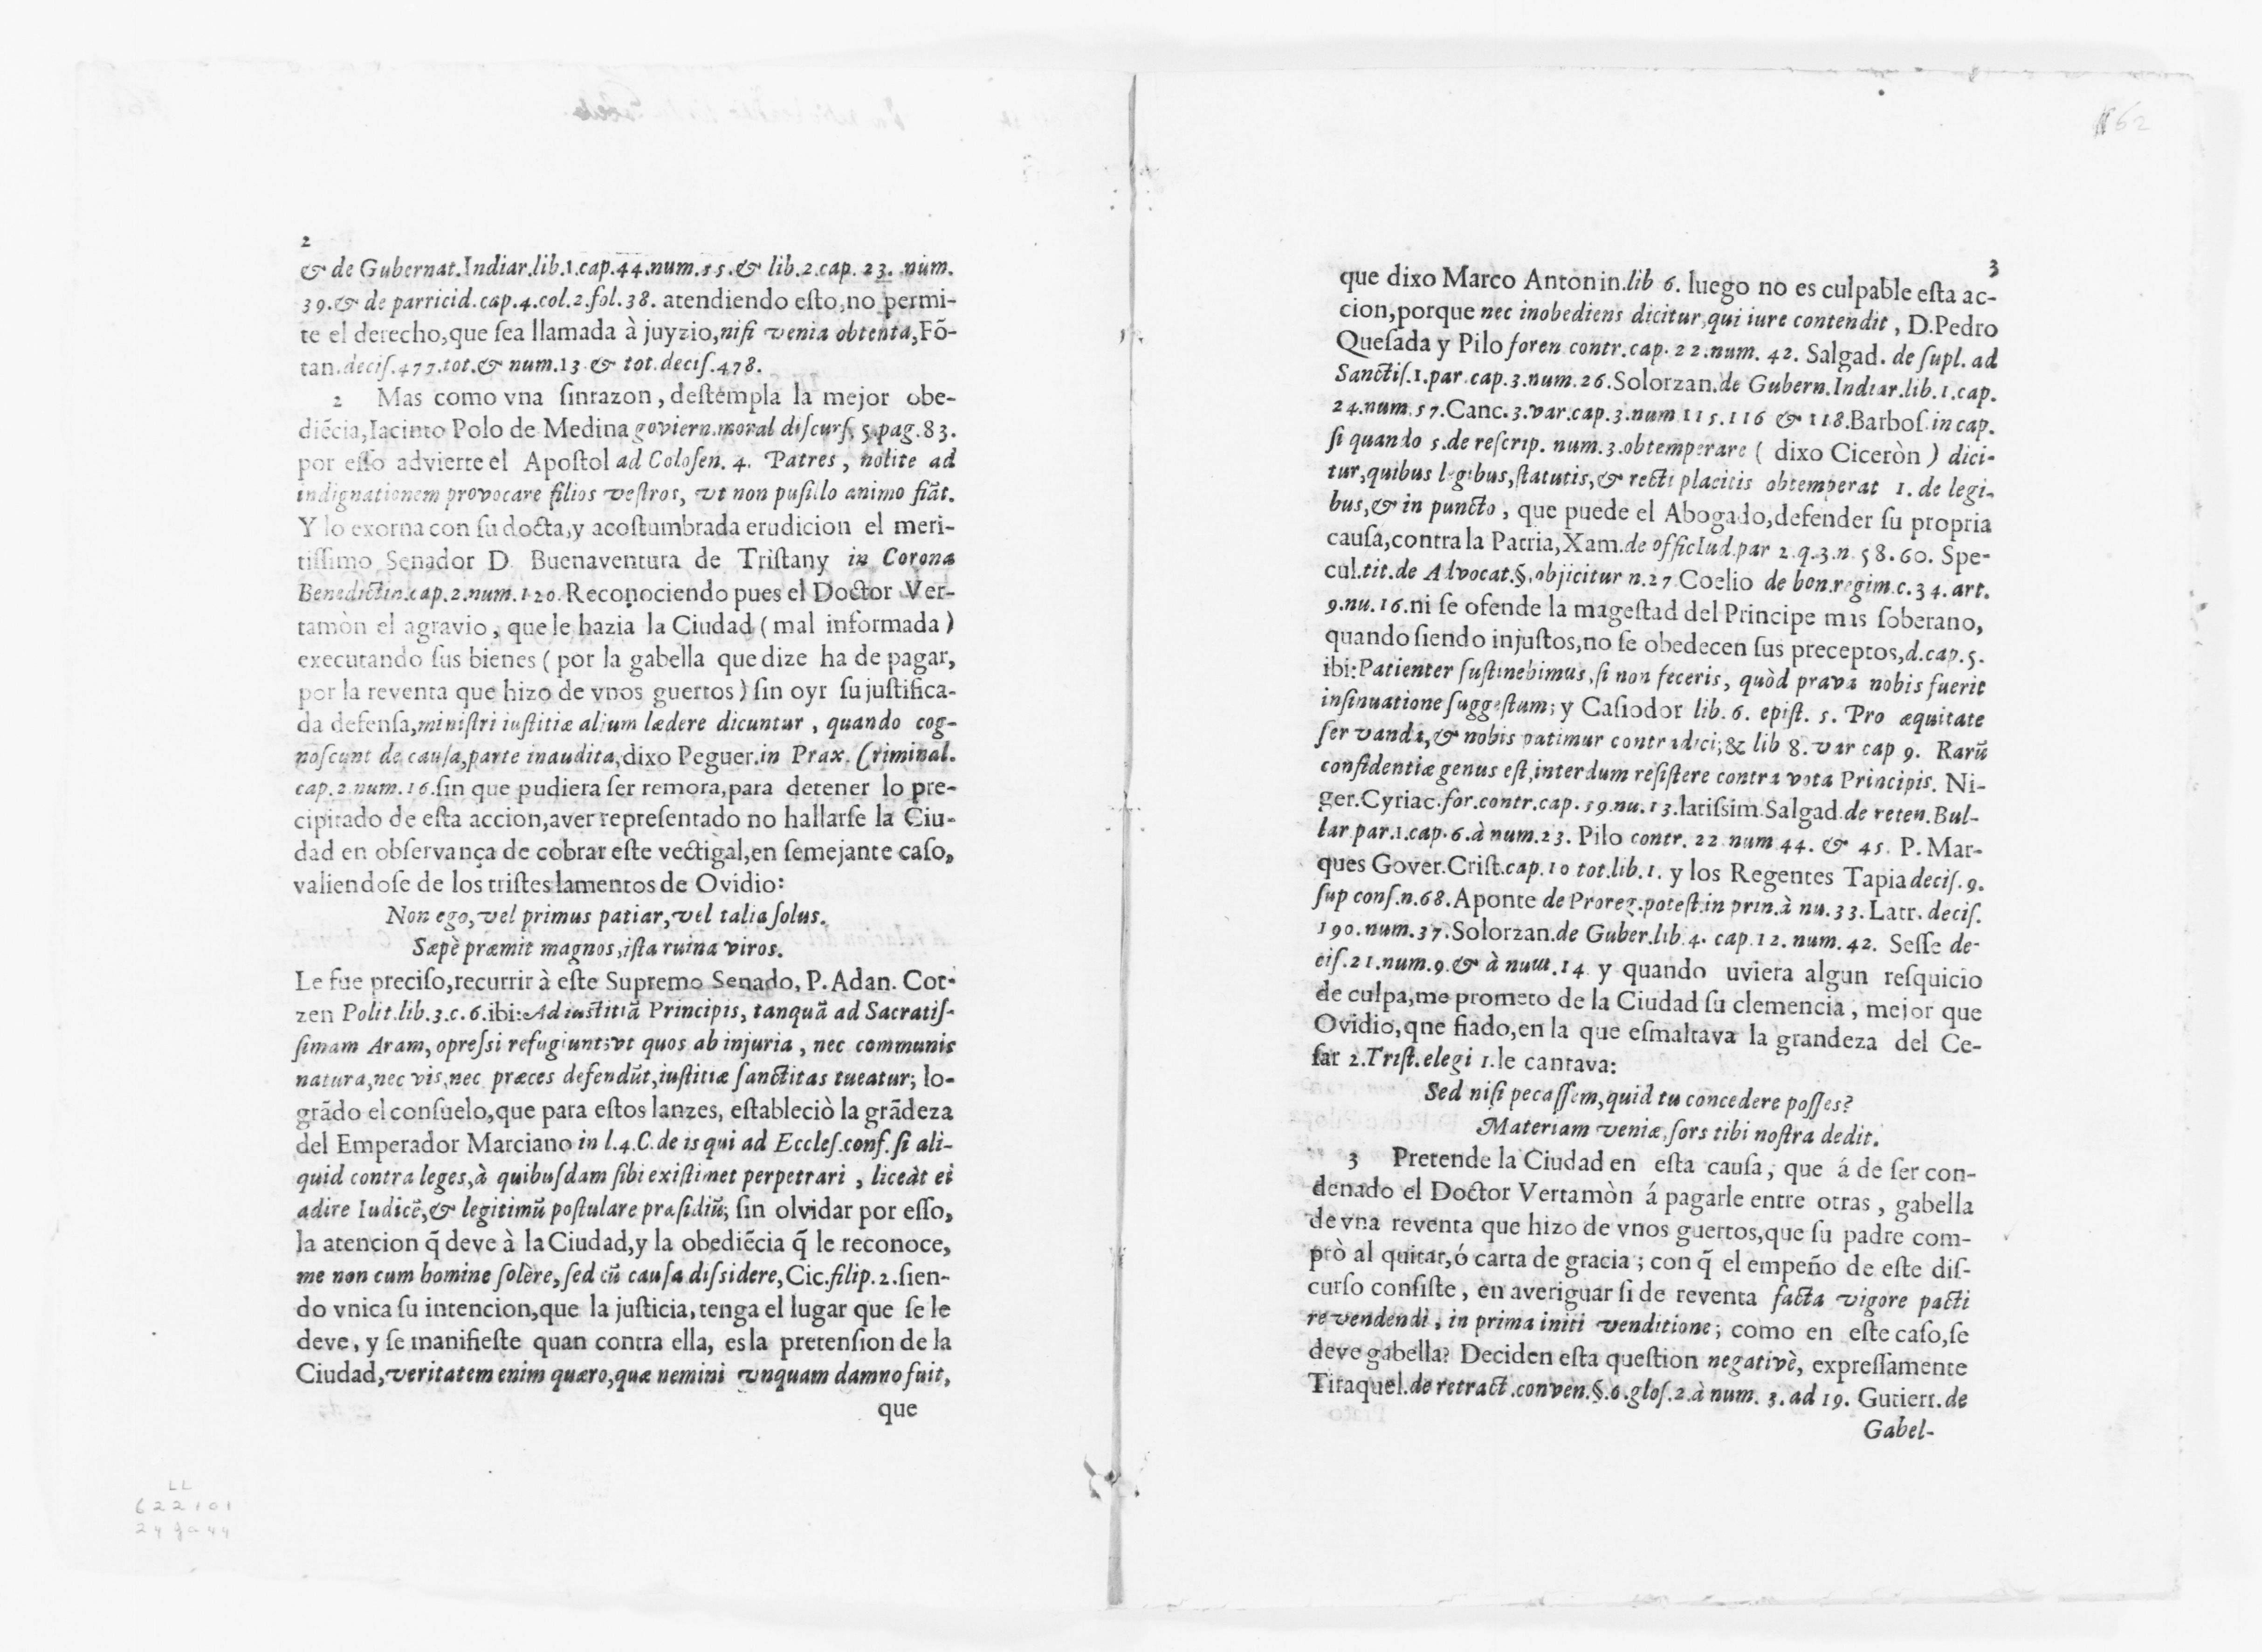 2
& de Gubernat.Indiar.lib.1.cap.44.num.55.& lib.2.cap. 23. num.
39.& de parricid.cap.4.col.2.fol.38. atendiendo eſto,no permi-
te el derecho,que ſea llamada à juyzio,niſi venia obtenta,Fõ-
tan.deciſ.477.tot.& num.13 & tot.deciſ.478.
2 Mas como vna ſinrazon, deſtempla la mejor obe-
diẽcia,Iacinto Polo de Medina goviern.moral diſcurſ. 5.pag.83.
por eſſo advierte el Apoſtol ad Coloſen. 4. Patres, nolite ad
indignationem provocare filios veſtros, vt non puſillo animo fiãt.
Y lo exorna con ſu docta,y acoſtumbrada erudicion el meri-
tiſſimo Senador D. Buenaventura de Triſtany in Corona
Benedictin.cap.2.num.120.Reconociendo pues el Doctor Ver-
tamòn el agravio, que le hazia la Ciudad (mal informada)
executando ſus bienes (por la gabella que dize ha de pagar,
por la reventa que hizo de vnos guertos) ſin oyr ſu juſtifica-
da defenſa,miniſtri iuſtitiæ alium lædere dicuntur, quando cog-
noſcunt de cauſa,parte inaudita,dixo Peguer.in Prax. Criminal.
cap.2.num.16.ſin que pudiera ſer remora,para detener lo pre-
cipitado de eſta accion,aver repreſentado no hallarſe la Ciu-
dad en obſervança de cobrar eſte vectigal,en ſemejante caſo,
valiendoſe de los triſtes lamentos de Ovidio:
Non ego, vel primus patiar, vel talia ſolus.
Sæpè præmit magnos,iſta ruina viros.
Le fue preciſo,recurrir à eſte Supremo Senado, P. Adan. Cot-
zen Polit.lib.3.c.6.ibi:Ad iuſtitiã Principis, tanquã ad Sacratiſ-
ſimam Aram, opreſsi refugiunt;vt quos ab injuria, nec communis
natura,nec vis,nec præces defendũt,iuſtitiæ ſanctitas tueatur; lo-
grãdo el conſuelo,que para eſtos lanzes, eſtableciò la grãdeza
del Emperador Marciano in l.4.C.de is qui ad Eccleſ.conf.ſi ali-
quid contra leges,à quibuſdam ſibi exiſtimet perpetrari, liceàt ei
adire Iudicẽ,& legitimũ poſtulare præſidiũ; ſin olvidar por eſſo,
la atencion q̃ deve à la Ciudad,y la obediẽcia q̃ le reconoce,
me non cum homine ſolère, ſed cũ cauſa diſsidere,Cic.filip.2.ſien-
do vnica ſu intencion,que la juſticia,tenga el lugar que ſe le
deve, y ſe manifieſte quan contra ella, es la pretenſion de la
Ciudad,veritatem enim quæro,quæ nemini vnquam damno fuit,
que
62
3
que dixo Marco Antonin.lib 6. luego no es culpable eſta ac-
cion,porque nec inobediens dicitur,qui iure contendit, D.Pedro
Queſada y Pilo foren contr.cap.22.num. 42. Salgad. de ſupl. ad
Sanctiſ.1.par.cap.3.num.26.Solorzan.de Gubern.Indiar.lib.1.cap.
24.num.57.Canc.3.var.cap.3.num 115.116 & 118.Barboſ.in cap.
ſi quando 5.de reſcrip. num.3.obtemperare ( dixo Ciceròn ) dici-
tur,quibus legibus,ſtatutis,& recti placitis obtemperat 1. de legi-
bus,& in puncto, que puede el Abogado,defender ſu propria
cauſa,contra la Patria,Xam.de officIud.par 2.q.3.n.58.60. Spe-
cul.tit.de Advocat.§.objicitur n.27.Coelio de bon.regim.c.34.art.
9.nu.16.ni ſe ofende la mageſtad del Principe mas ſoberano,
quando ſiendo injuſtos,no ſe obedecen ſus preceptos,d.cap.5.
ibi:Patienter ſuſtinebimus,ſi non feceris, quòd prava nobis fuerit
inſinuatione ſuggeſtum; y Caſiodor lib. 6. epiſt. 5. Pro æquitate
ſervanda,& nobis patimur contradici;& lib 8. var cap 9. Rarũ
confidentiæ genus eſt,interdum reſiſtere contra vota Principis. Ni-
ger.Cyriac.for.contr.cap.59.nu.13.latiſsim.Salgad.de reten.Bul-
lar.par.1.cap.6.à num.23. Pilo contr. 22 num 44. & 45. P. Mar-
ques Gover.Criſt.cap.10 tot.lib.1. y los Regentes Tapia deciſ.9.
ſup conſ.n.68.Aponte de Proreg.poteſt.in prin.à nu.33.Latr. deciſ.
190.num.37.Solorzan.de Guber.lib.4. cap.12. num.42. Seſſe de-
ciſ.21.num.9.& à num.14 y quando uviera algun reſquicio
de culpa,me prometo de la Ciudad ſu clemencia, mejor que
Ovidio,qne fiado,en la que eſmaltava la grandeza del Ce-
ſar 2.Triſt.elegi 1.le cantava:
Sed niſi pecaſſem,quid tu concedere poſſes?
Materiam veniæ,ſors tibi noſtra dedit.
3 Pretende la Ciudad en eſta cauſa, que á de ſer con-
denado el Doctor Vertamòn á pagarle entre otras, gabella
de vna reventa que hizo de vnos guertos,que ſu padre com-
prò al quitar,ó carta de gracia; con q̃ el empeño de eſte diſ-
curſo conſiſte, en averiguar ſi de reventa facta vigore pacti
revendendi, in prima initi venditione; como en eſte caſo,ſe
deve gabella? Deciden eſta queſtion negativè, expreſſamente
Tiraquel.de retract.conven.§.6.gloſ.2.à num. 3. ad 19. Gutierr.de
Gabel-
LL
622101